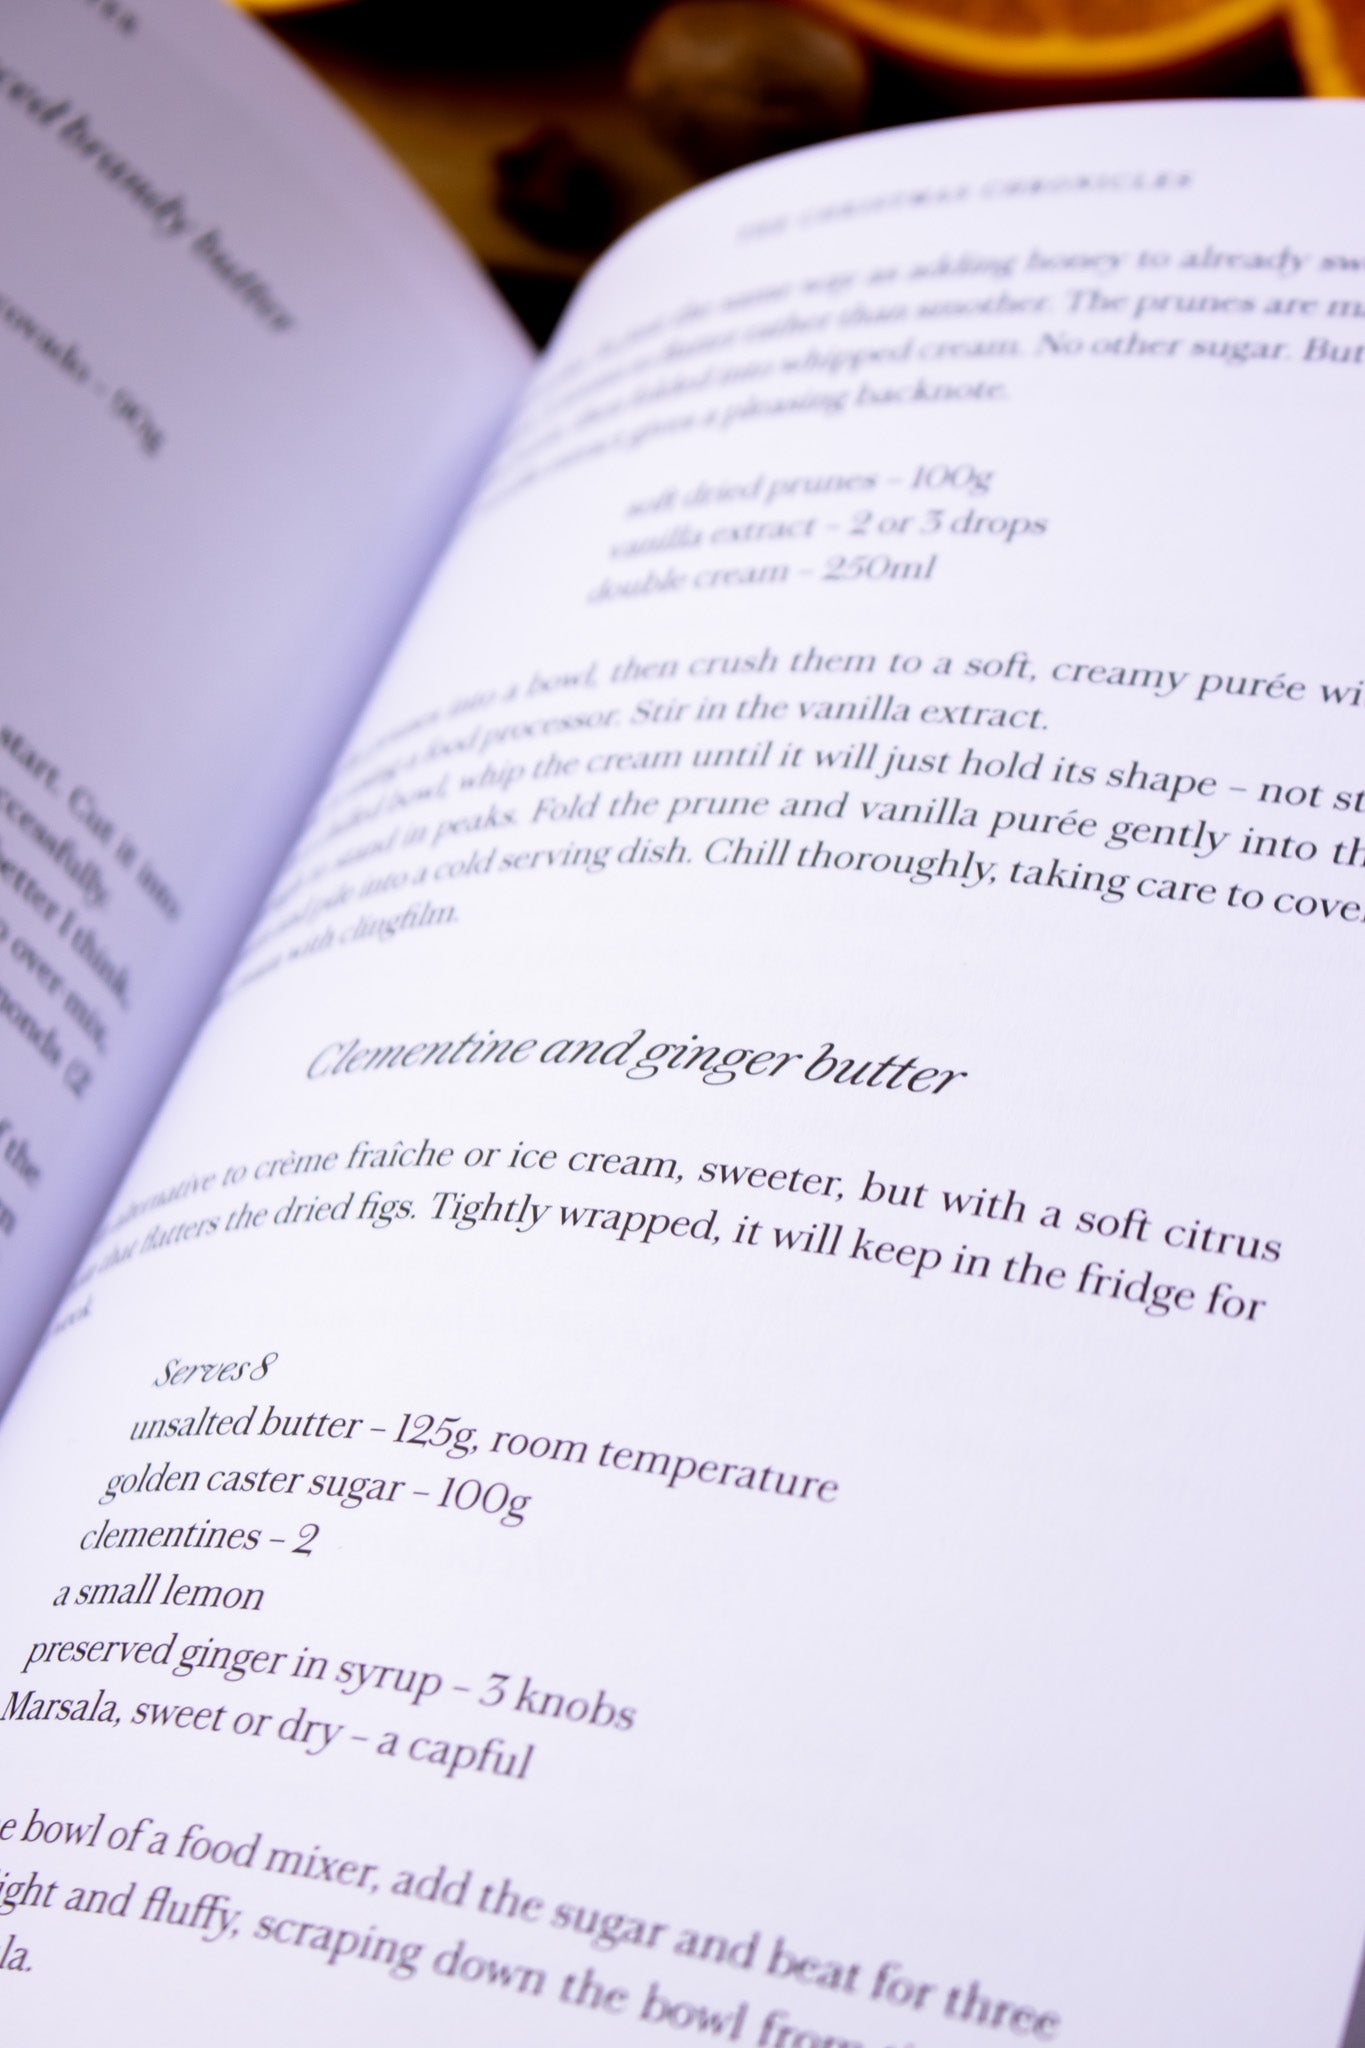 brandy butter
– 90g
start. Cut it into
better I think,
over mix,
the
THE CHRISTMAS CHRONICLES
the same way as adding honey to already
rather than smother. The prunes are
folded into whipped cream. No other sugar. But
gives a pleasing backnote.
soft dried prunes – 100g
vanilla extract – 2 or 3 drops
double cream – 250ml
into a bowl, then crush them to a soft, creamy purée
using a food processor. Stir in the vanilla extract.
bowl, whip the cream until it will just hold its shape – not
to stand in peaks. Fold the prune and vanilla purée gently into
and pile into a cold serving dish. Chill thoroughly, taking care to
with clingfilm.
Clementine and ginger butter
alternative to crème fraîche or ice cream, sweeter, but with a soft citrus
that flatters the dried figs. Tightly wrapped, it will keep in the fridge for
week.
Serves 8
unsalted butter – 125g, room temperature
golden caster sugar – 100g
clementines – 2
a small lemon
preserved ginger in syrup – 3 knobs
Marsala, sweet or dry – a capful
bowl of a food mixer, add the sugar and beat for three
and fluffy, scraping down the bowl from
la.